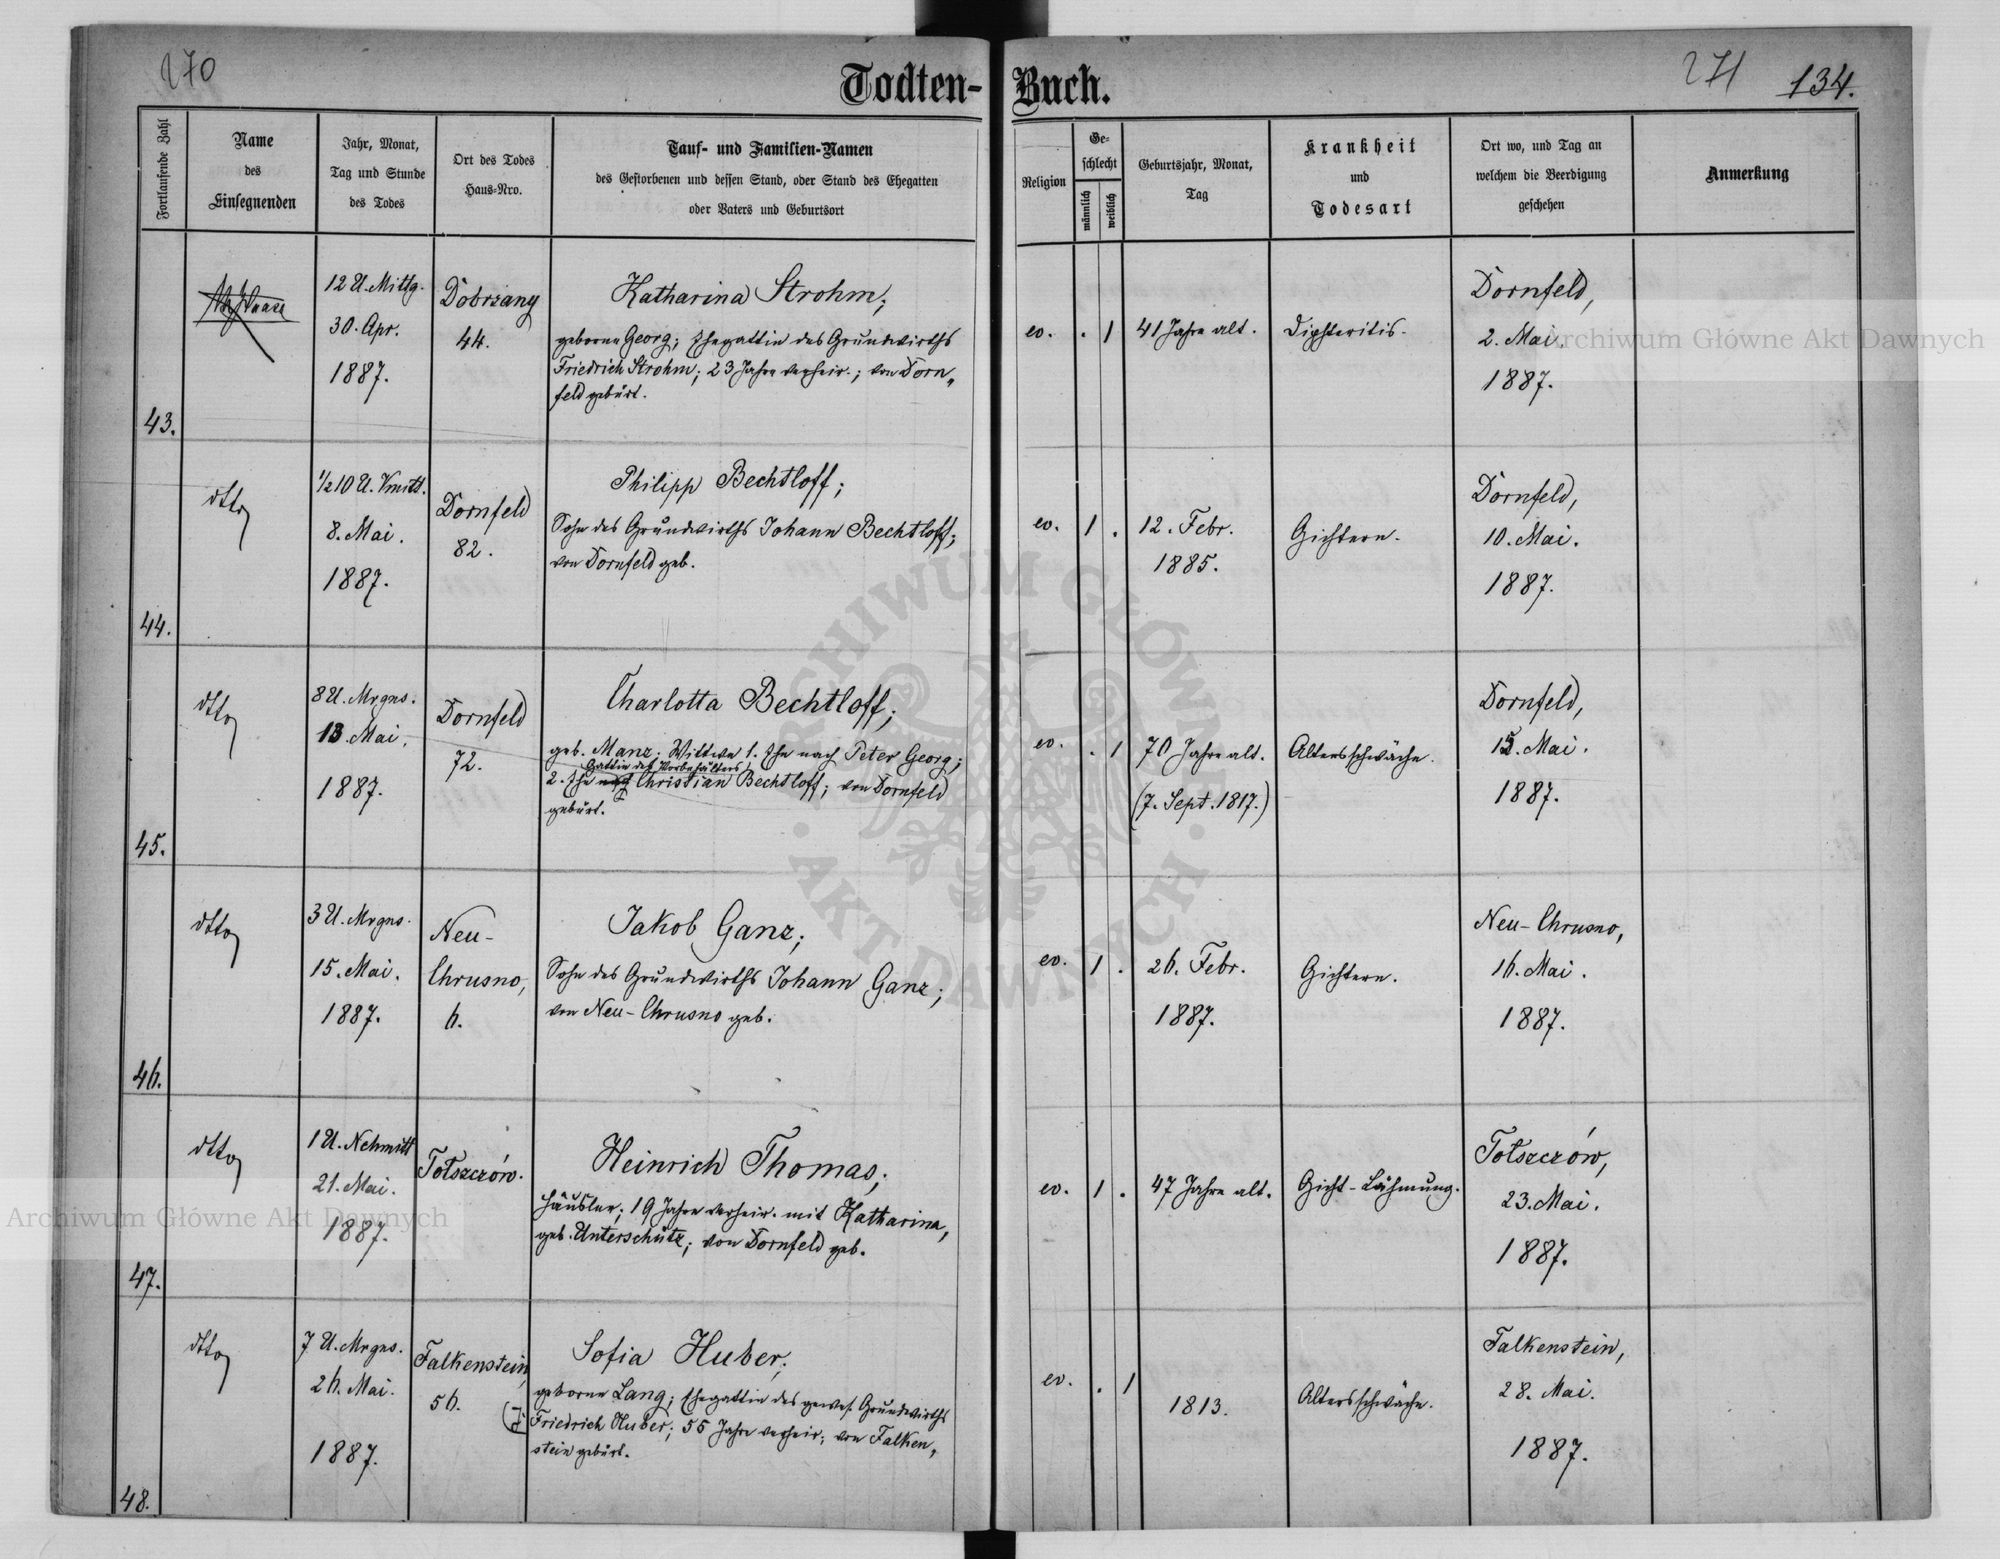 270
Todten-Buch.
271 134.
Fortlaufende Zahl
Name
des
Einsegnenden
Jahr, Monat,
Tag und Stunde
des Todes
Ort des Todes
Haus-Nro.
Tauf- und Familien-Namen
des Gestorbenen und dessen Stand, oder Stand des Ehegatten
oder Vaters und Geburtsort
Religion
Ge-
schlecht
männlich
weiblich
Geburtsjahr, Monat,
Tag
Krankheit
und
Todesart
Ort wo, und Tag an
welchem die Beerdigung
geschehen
Anmerkung
43.
12 U. Mittg.
30. Apr.
1887.
Dobrzany
44.
Katharina Strohm;
geborene Georg; Ehegattin des Grundwirths
Friedrich Strohm; 23 Jahre verheir.; von Dorn„
feld gebürt.
ev. . 1
41 Jahre alt.
Diphteritis.
Dornfeld,
2. Mai.
1887.
44.
dtto
½10 U. Vmitt.
8. Mai.
1887.
Dornfeld
82.
Philipp Bechtloff;
Sohn des Grundwirths Johann Bechtloff;
von Dornfeld geb.
ev. 1 .
12. Febr.
1885.
Gichtern.
Dornfeld,
10. Mai.
1887.
45.
dtto
8 U. Mrgns.
13. Mai.
1887.
Dornfeld
72.
Charlotta Bechtloff;
geb. Manz; Wittwe 1. Ehe nach Peter Georg;
Gattin des Vorbehälters
2. Ehe nach Christian Bechtloff; von Dornfeld
gebürt.
ev. . 1
70 Jahre alt.
(7. Sept. 1817.)
Altersschwäche.
Dornfeld,
15. Mai.
1887.
46.
dtto
3 U. Mrgns.
15. Mai.
1887.
Neu-
Chrusno,
6.
Jakob Ganz;
Sohn des Grundwirths Johann Ganz;
von Neu-Chrusno geb.
ev. 1 .
26. Febr.
1887.
Gichtern.
Neu-Chrusno,
16. Mai.
1887.
47.
dtto
1 U. Nchmitt
21. Mai.
1887.
Tołszczów.
Heinrich Thomas;
Häusler; 19 Jahre verheir. mit Katharina,
geb. Unterschütz; von Dornfeld geb.
ev. 1 .
47 Jahre alt.
Gicht-Lähmung.
Tołszczów,
23. Mai.
1887.
48.
dtto
7 U. Mrgns.
26. Mai.
1887.
Falkenstein,
56.
Sofia Huber;
geborene Lang; Ehegattin des gewes. Grundwirths
Friedrich Huber; 55 Jahre verheir; von Falken„
stein gebürt.
ev. . 1
1813.
Altersschwäche.
Falkenstein,
28. Mai.
1887.
Archiwum Główne Akt Dawnych
Archiwum Główne Akt Dawnych
ARCHIWUM GŁÓWNE
· AKT DAWNYCH ·